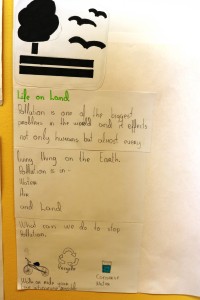 Life on Land
Pollution is one of the biggest
problem in the world and it effects
not only humans but almost every
living thing on the Earth.
Pollution is in -
Water
Air
and Land
What can we do to stop
Pollution.
Recycle
Conserve
Water
Walk or ride your if